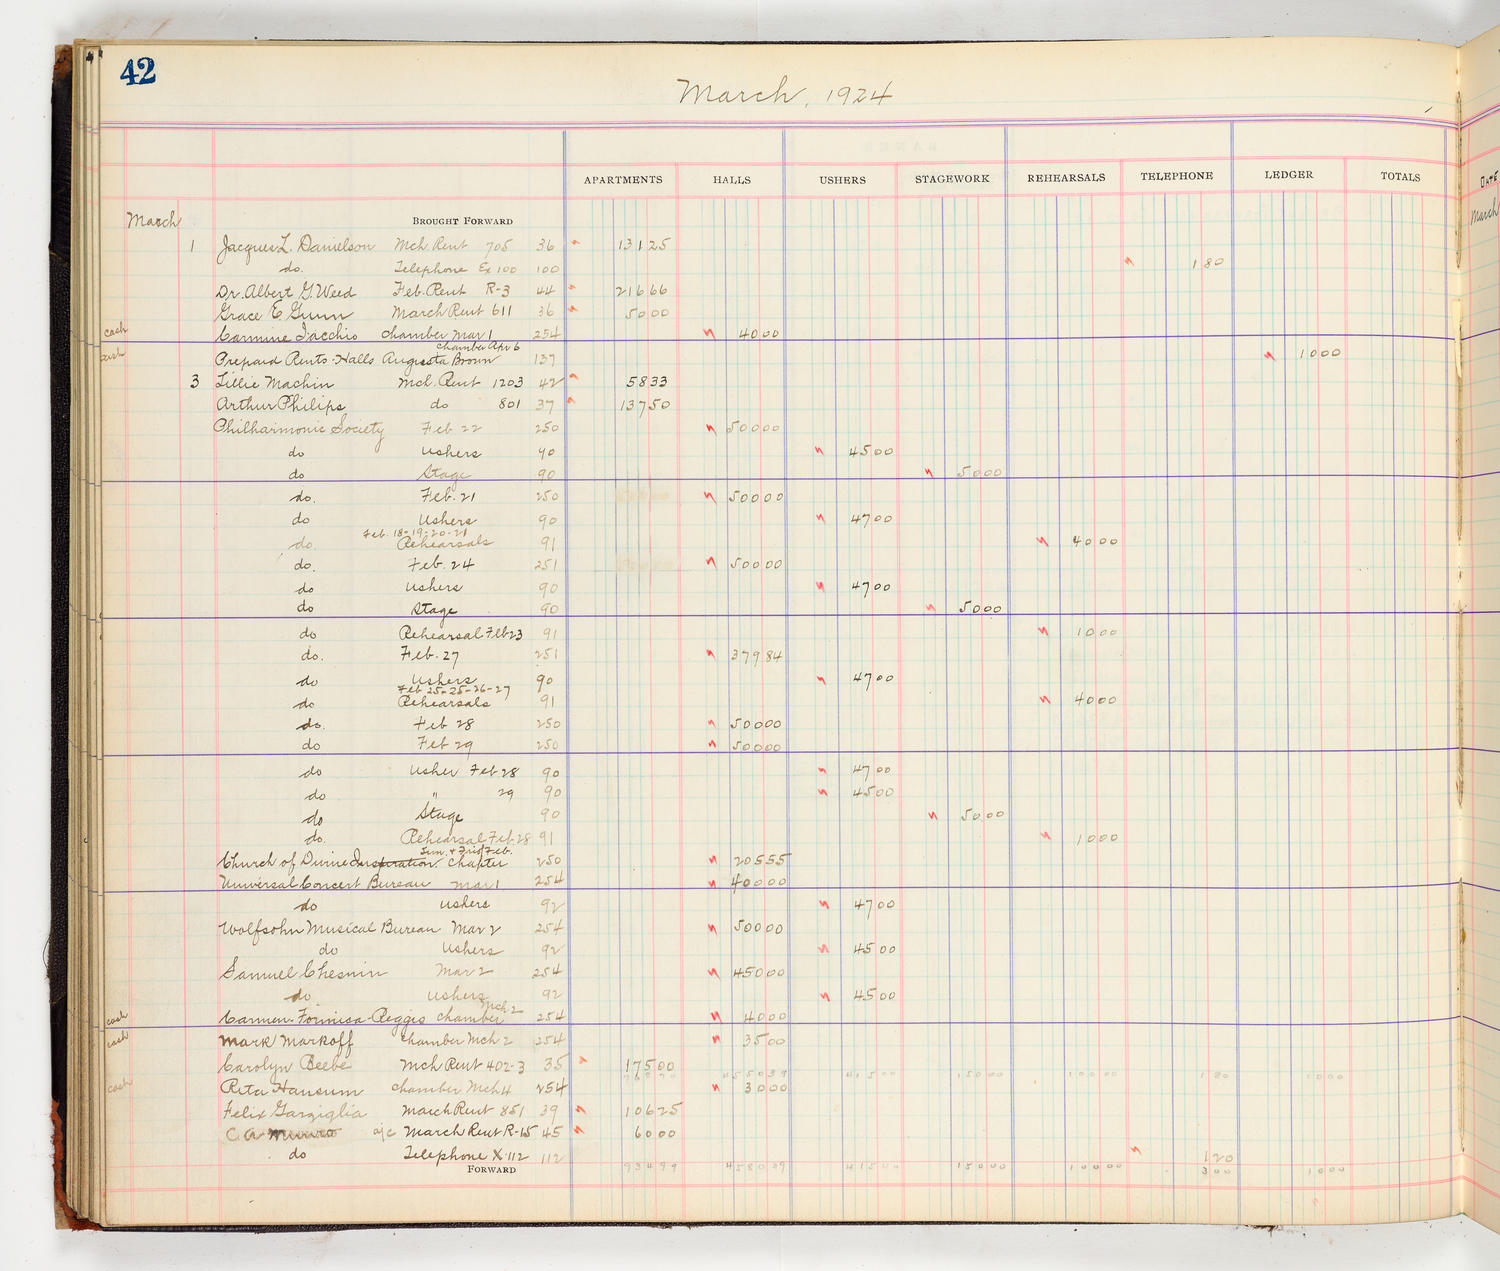 42
March, 1924
APARTMENTS HALLS USHERS STAGEWORK REHEARSALS TELEPHONE LEDGER TOTALS
March BROUGHT FORWARD
1 Jacques L. Danielson Mch Rent 705 36 131 25
do. Telephone Ex 100 100 1 80
Dr. Albert G. Weed Feb. Rent R-3 44 216 66
Grace E. Gunn March Rent 611 36 50 00
cash Carmine Iacchio chamber Mar 1 254 40 00
chamber Apr 6
cash Prepaid Rents-Halls Augusta Brown 137 10 00
3 Lillie Machin Mch. Rent 1203 42 58 33
Arthur Philips do 801 37 137 50
Philharmonic Society Feb 22 250 500 00
do Ushers 90 45 00
do Stage 90 50 00
do. Feb. 21 250 500 00
do Ushers 90 47 00
Feb. 18-19-20-21
do. Rehearsals 91 40 00
do. Feb. 24 251 500 00
do Ushers 90 47 00
do Stage 90 50 00
do Rehearsal Feb 23 91 10 00
do. Feb. 27 251 379 84
do Ushers 90 47 00
Feb 25-25-26-27
do Rehearsals 91 40 00
do. Feb 28 250 500 00
do Feb 29 250 500 00
do Usher Feb 28 90 47 00
do " 29 90 45 00
do Stage 90 50 00
do. Rehearsal Feb. 28 91 10 00
Feb.
Church of Divine Inspiration. Chapter 250 205 55
Universal Concert Bureau Mar 1 254 400 00
do Ushers 92 47 00
Wolfsohn Musical Bureau Mar 2 254 500 00
do Ushers 92 45 00
Samuel Chesnin Mar 2 254 450 00
do Ushers 92 45 00
Mch 2
cash Carmen Formica-Reggis chamber 254 40 00
cash Mark Markoff chamber Mch 2 254 35 00
Carolyn Beebe Mch Rent 402-3 35 175 00
4550 39 415 00 150 00 100 00 1 80 10 00
cash Rita Hansum chamber Mch 4 254 30 00
Felix Garziglia March Rent 851 39 106 25
C. A. Munro a/c March Rent R-15 45 60 00
do Telephone X-112 112 1 20
FORWARD 934 99 4580 39 415 00 150 00 100 00 3 00 10 00
DATE
March